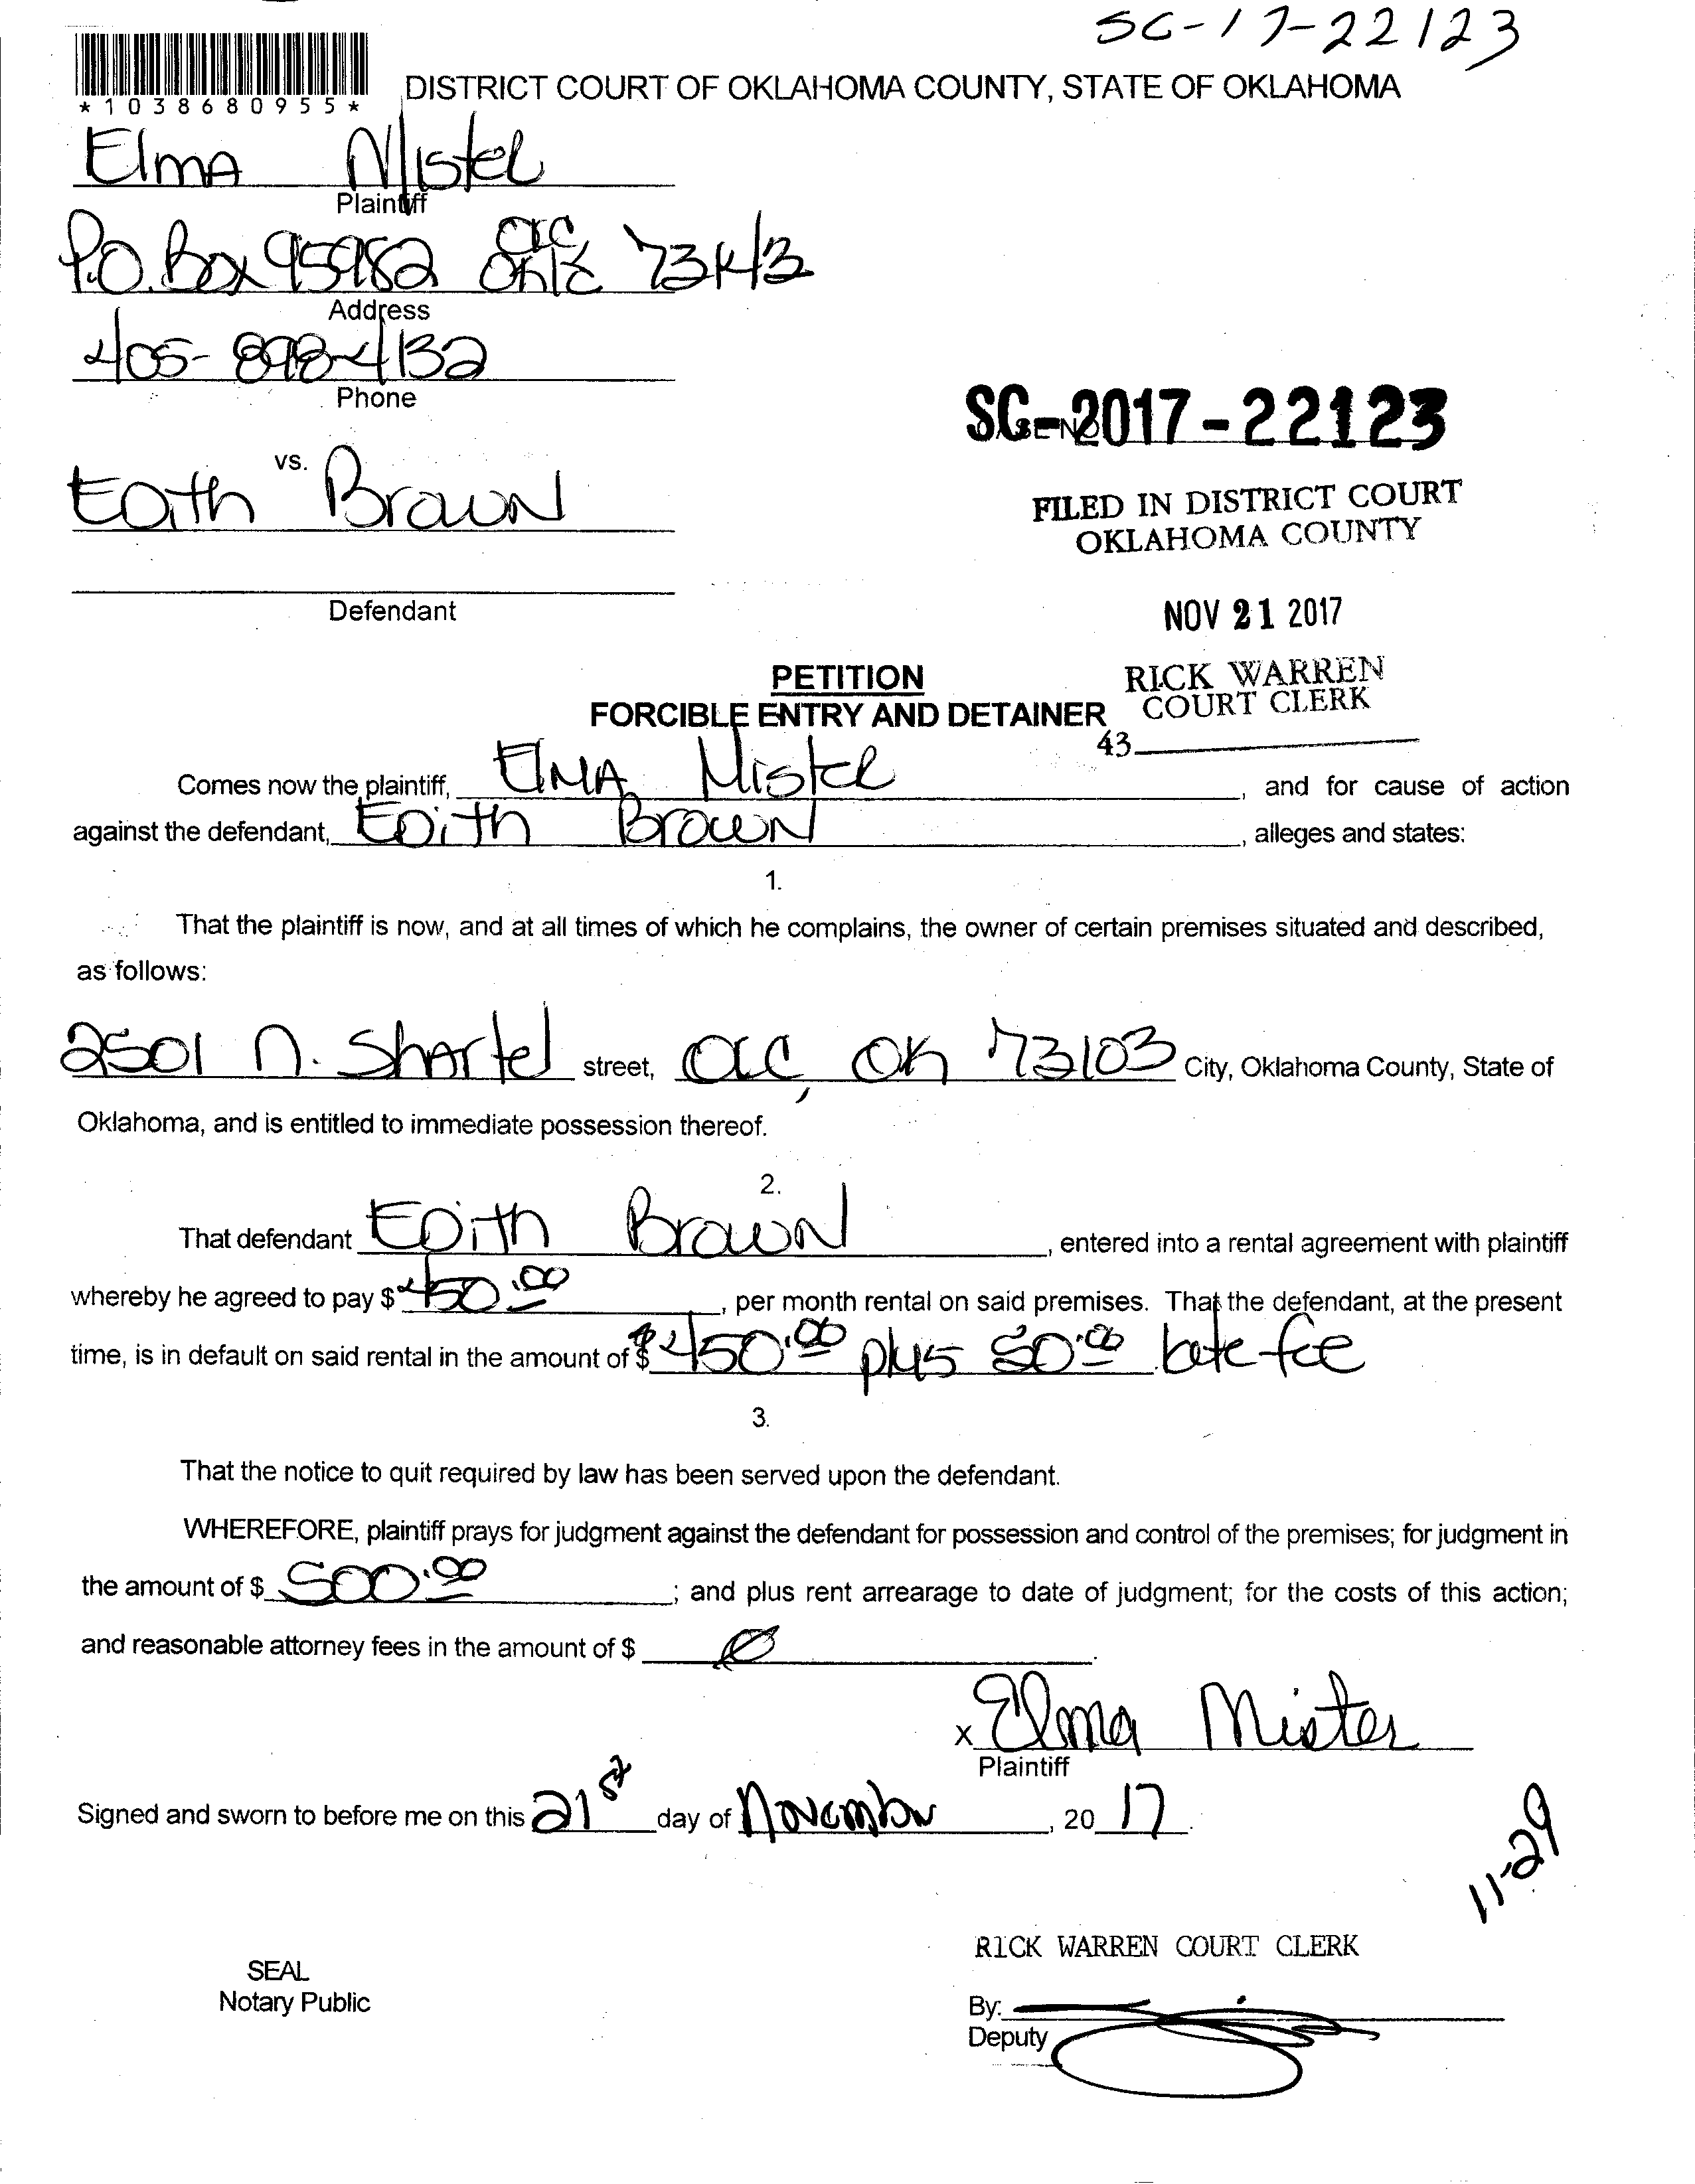 SC-17-22123
*1038680955*
DISTRICT COURT OF OKLAHOMA COUNTY, STATE OF OKLAHOMA
Elma Mister
Plaintiff
P.O. Box 95982 OKC 73143
Address
405-898-4132
Phone
SC-2017-22123
vs.
Edith Brown
FILED IN DISTRICT COURT
OKLAHOMA COUNTY
Defendant
NOV 21 2017
PETITION
RICK WARREN
FORCIBLE ENTRY AND DETAINER
COURT CLERK
43
Comes now the plaintiff, Elma Mister, and for cause of action
against the defendant, Edith Brown, alleges and states:
1.
That the plaintiff is now, and at all times of which he complains, the owner of certain premises situated and described,
as follows:
2501 N. Shartel street, OKC, OK 73103 City, Oklahoma County, State of
Oklahoma, and is entitled to immediate possession thereof.
2.
That defendant Edith Brown, entered into a rental agreement with plaintiff
whereby he agreed to pay $450.00, per month rental on said premises. That the defendant, at the present
time, is in default on said rental in the amount of $ $450.00 plus 50.00 late fee
3.
That the notice to quit required by law has been served upon the defendant.
WHEREFORE, plaintiff prays for judgment against the defendant for possession and control of the premises; for judgment in
the amount of $ 500.00; and plus rent arrearage to date of judgment; for the costs of this action;
and reasonable attorney fees in the amount of $ 0.
x Elma Mister
Plaintiff
Signed and sworn to before me on this 21st day of November, 20 17.
11-29
RICK WARREN COURT CLERK
SEAL
Notary Public
By:
Deputy